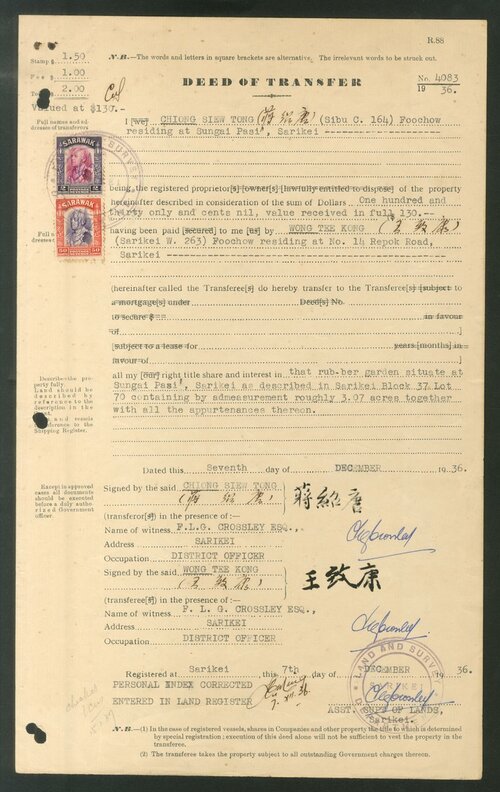 R.88
Stamp $ 1.50
Fee $ 1.00
2.00
Valued at $130.--
N.B.—The words and letters in square brackets are alternative. The irrelevant words to be struck out.
DEED OF TRANSFER
No. 4083
1936.
Full names and addresses of transferors
I [we] CHIONG SIEW TONG (蔣紹唐) (Sibu C. 164) Foochow
residing at Sungai Pasi', Sarikei
SARAWAK
being the registered proprietor[s] [owner[s] [lawfully entitled to dispose] of the property
hereinafter described in consideration of the sum of Dollars One hundred and
thirty only and cents nil, value received in full 130.--
SARAWAK
having been paid [secured] to me [us] by WONG TEE KONG (王致康)
(Sarikei W. 263) Foochow residing at No. 14 Repok Road,
Sarikei
(hereinafter called the Transferee[s] do hereby transfer to the Transferee[s] [subject to
a mortgage[s] under Deed[s] No.
to secure $ in favour
of ]
[subject to a lease for years [months] in
favour of ]
Describe the property fully.
Land should be described by reference to the description in the
Shipping Register.
all my [our] right title share and interest in that rub-ber garden situate at
Sungai Pasi', Sarikei as described in Sarikei Block 37 Lot
70 containing by admeasurement roughly 3.07 acres together
with all the appurtenances thereon.
Dated this Seventh day of DECEMBER 1936.
Except in approved cases all documents should be executed before a duly authorized Government officer.
Signed by the said CHIONG SIEW TONG
(蔣紹唐) 蔣紹唐
(transferor[s] in the presence of:—
Name of witness F.L.G. CROSSLEY ESQ.,
Address SARIKEI
Occupation DISTRICT OFFICER
Signed by the said WONG TEE KONG
(王致康) 王致康
(transferee[s] in the presence of:—
Name of witness F. L. G. CROSSLEY ESQ.,
Address SARIKEI
Occupation DISTRICT OFFICER
Registered at Sarikei this 7th day of DECEMBER 1936.
PERSONAL INDEX CORRECTED
ENTERED IN LAND REGISTER
7. XII. 36
LAND AND SURVEY
ASST. SUPT OF LANDS,
Sarikei.
N.B.—(1) In the case of registered vessels, shares in Companies and other property the title to which is determined
by special registration; execution of this deed alone will not be sufficient to vest the property in the
transferee.
(2) The transferee takes the property subject to all outstanding Government charges thereon.